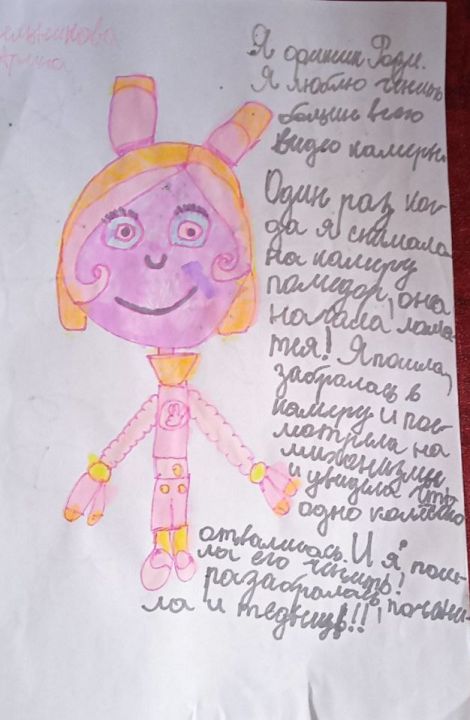 Мельникова
Арина
Я фиксик Рози.
Я люблю чинить
больше всего
видео камеры.
Один раз ког
да я снимала
на камеру
помедор, она
начала лома-
тся! Я пошла,
забралась в
камеру и пос-
мотрела на
миханизмы
и увидела что
одно колёсико
отвалилось. И я пош-
ла его чинить!
разабралась, починик-
ла и тедыщь!!!